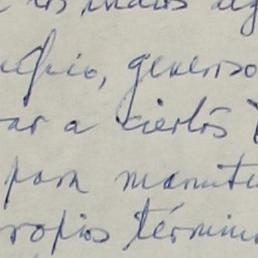 los indios
generoso
ar a ciertos
para manute
ropios términ